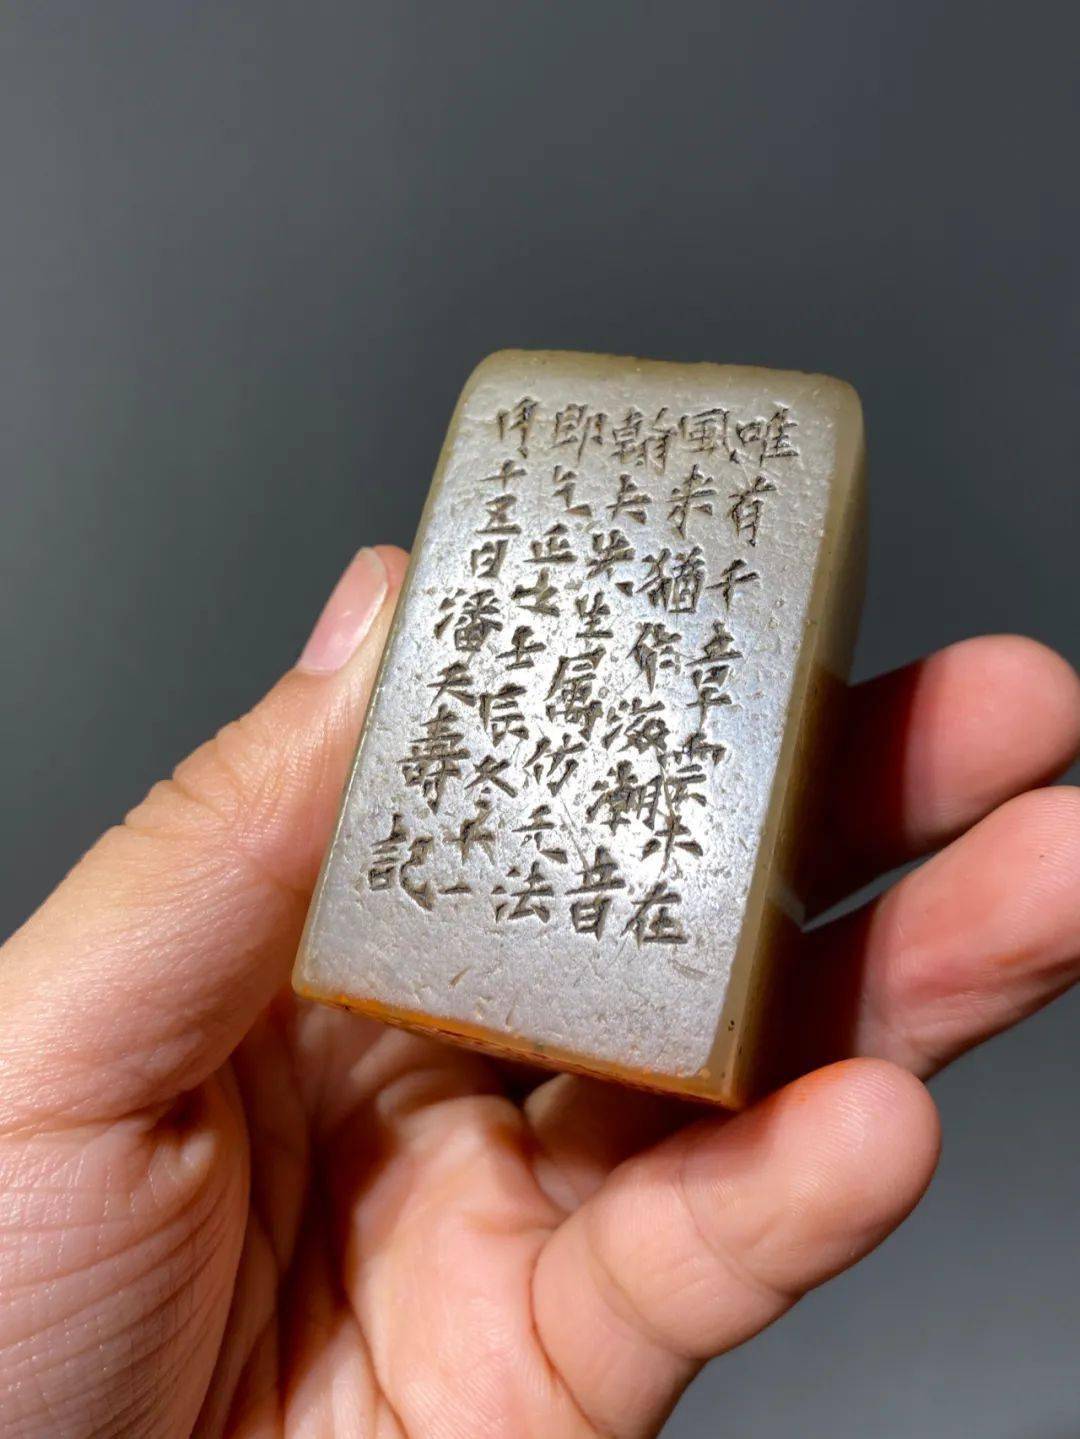 唯有千章雲木在
風来猶作海潮音
翰夫先生屬仿元法
即乞正之壬辰冬十一
月十五日潘天壽記